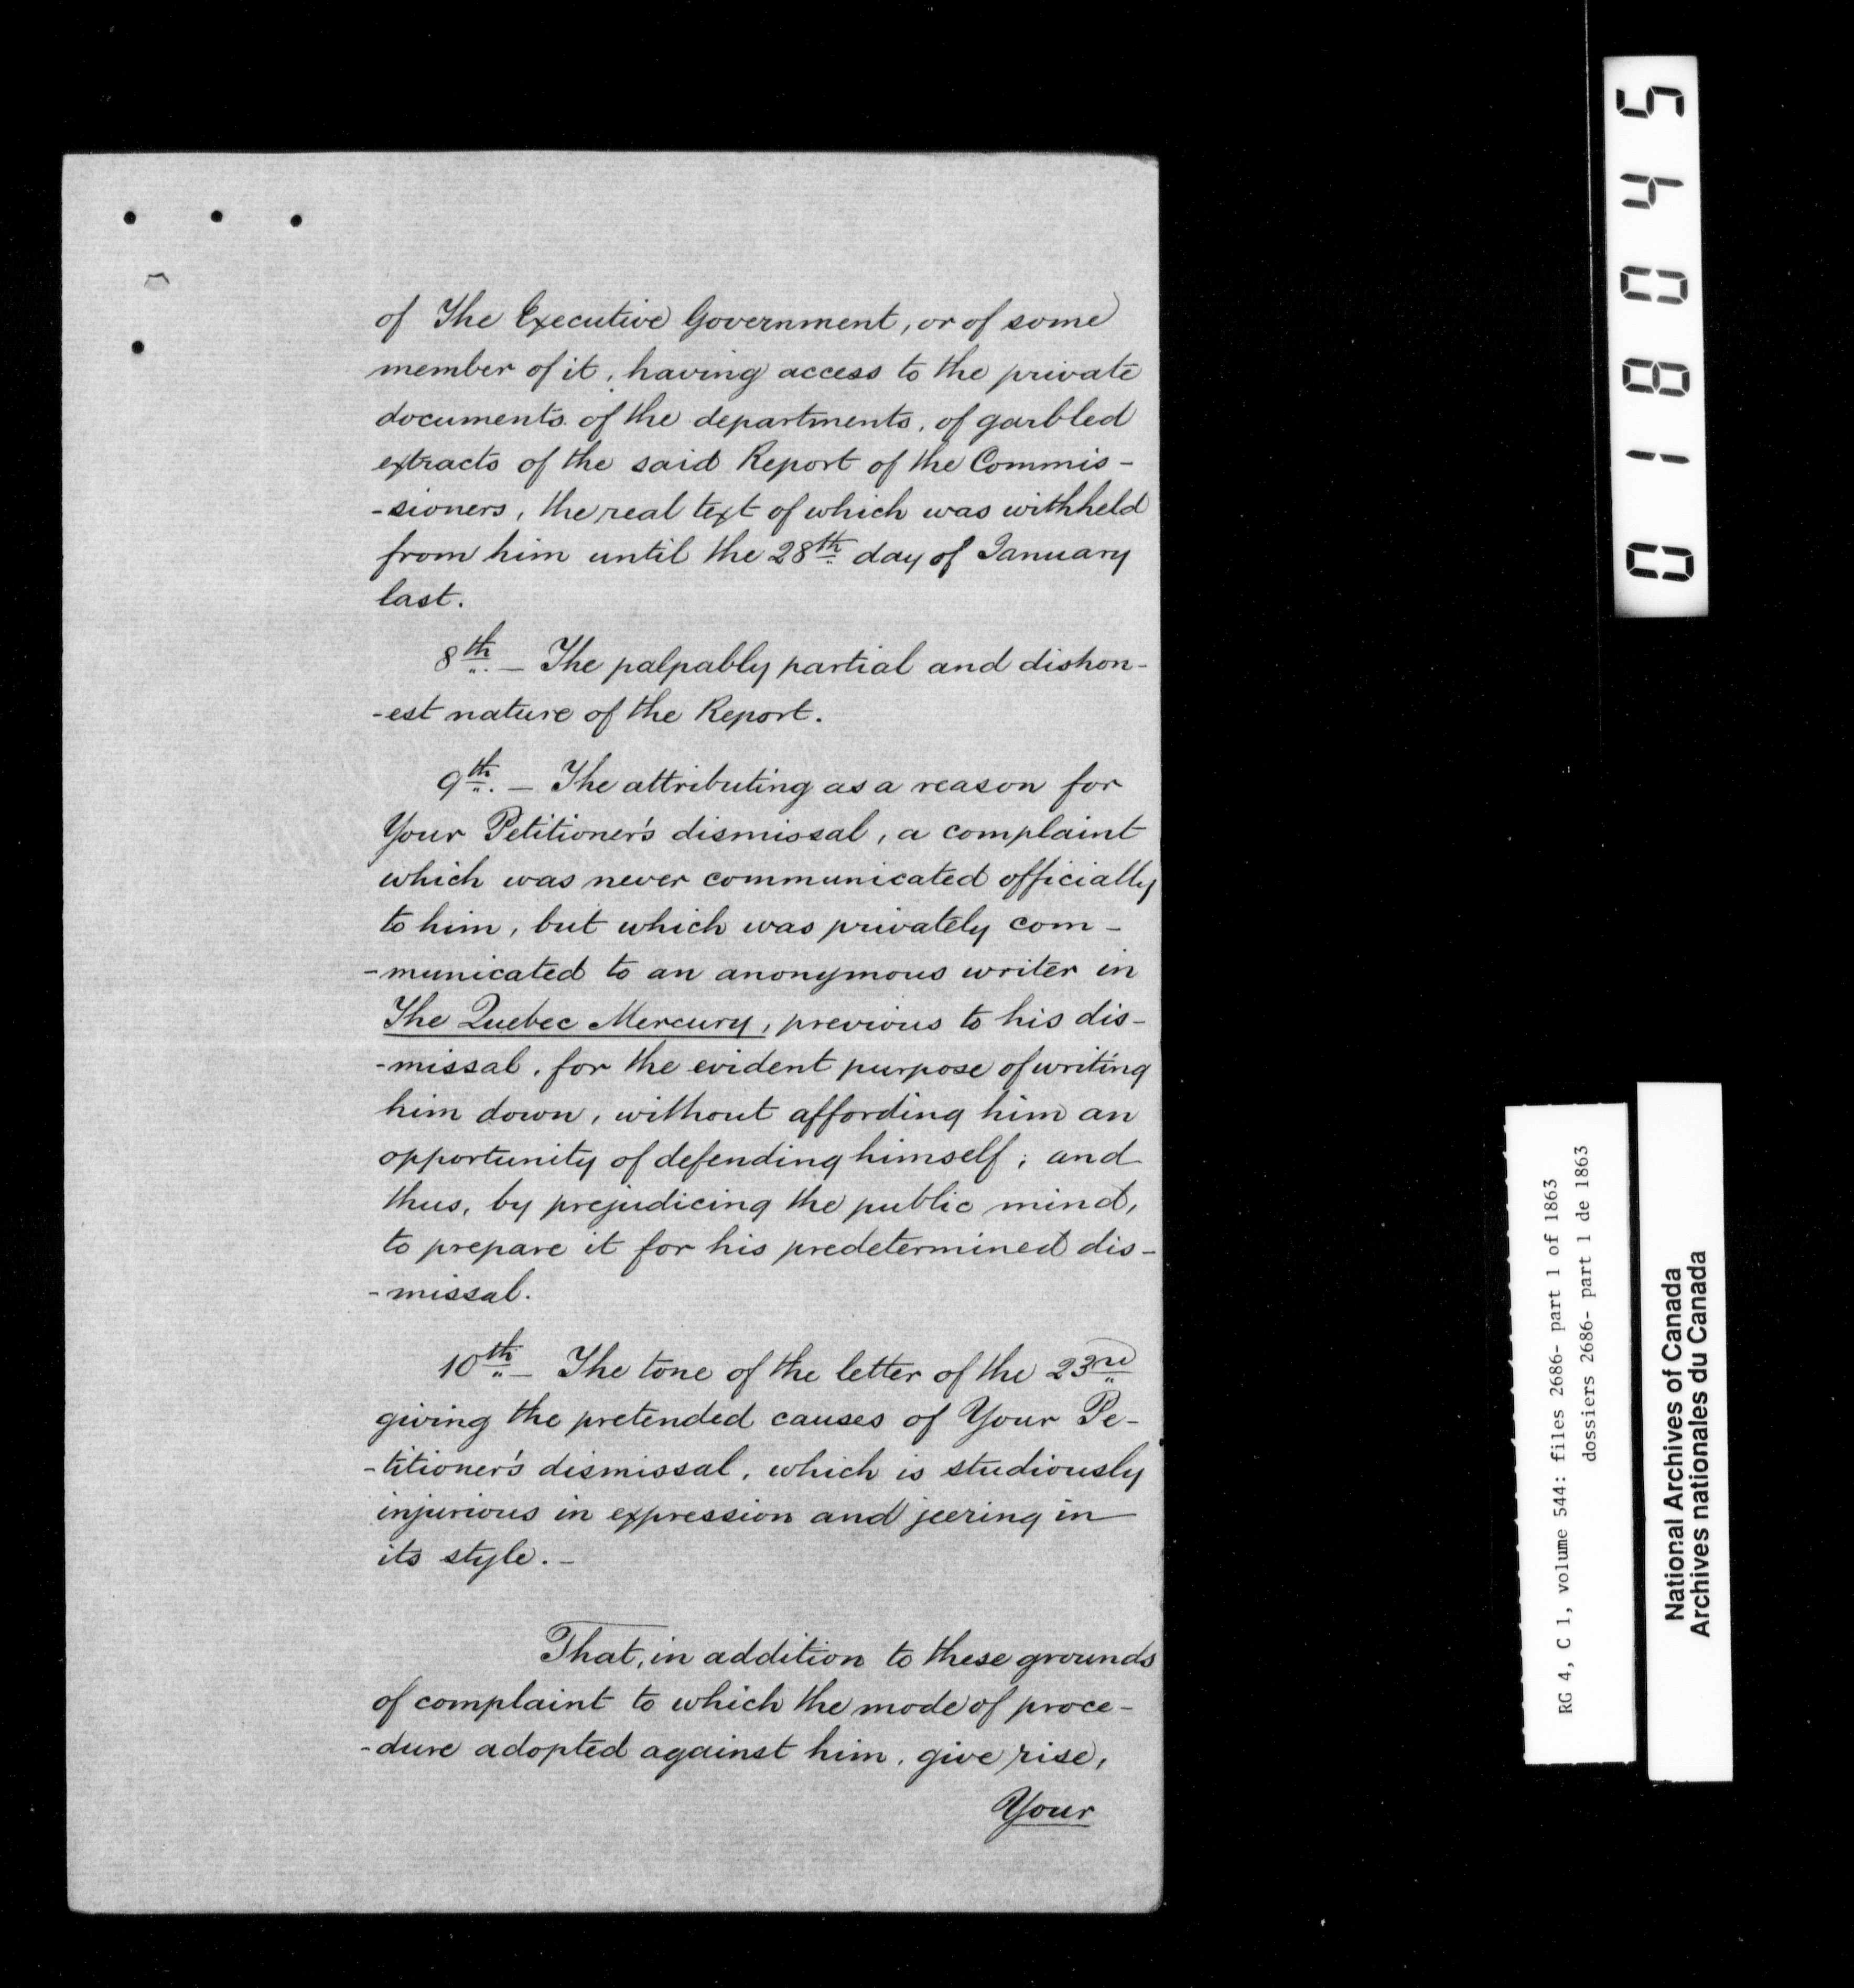 of The Executive Government, or of some
member of it, having access to the private
documents of the departments, of garbled
extracts of the said Report of the Commis-
-sioners, the real text of which was withheld
from him until the 28th day of January
last.
8th. — The palpably partial and dishon-
-est nature of the Report.
9th. — The attributing as a reason for
Your Petitioner's dismissal, a complaint
which was never communicated officially
to him, but which was privately com-
-municated to an anonymous writer in
The Quebec Mercury, previous to his dis-
-missal, for the evident purpose of writing
him down, without affording him an
opportunity of defending himself; and
thus, by prejudicing the public mind,
to prepare it for his predetermined dis-
-missal.
10th — The tone of the letter of the 23rd
giving the pretended causes of Your Pe-
-titioner's dismissal, which is studiously
injurious in expression and jeering in
its style. —
That, in addition to these grounds
of complaint to which the mode of proce-
-dure adopted against him, give rise,
Your
018045
RG 4, C 1, volume 544: files 2686- part 1 of 1863
dossiers 2686- part 1 de 1863
National Archives of Canada
Archives nationales du Canada